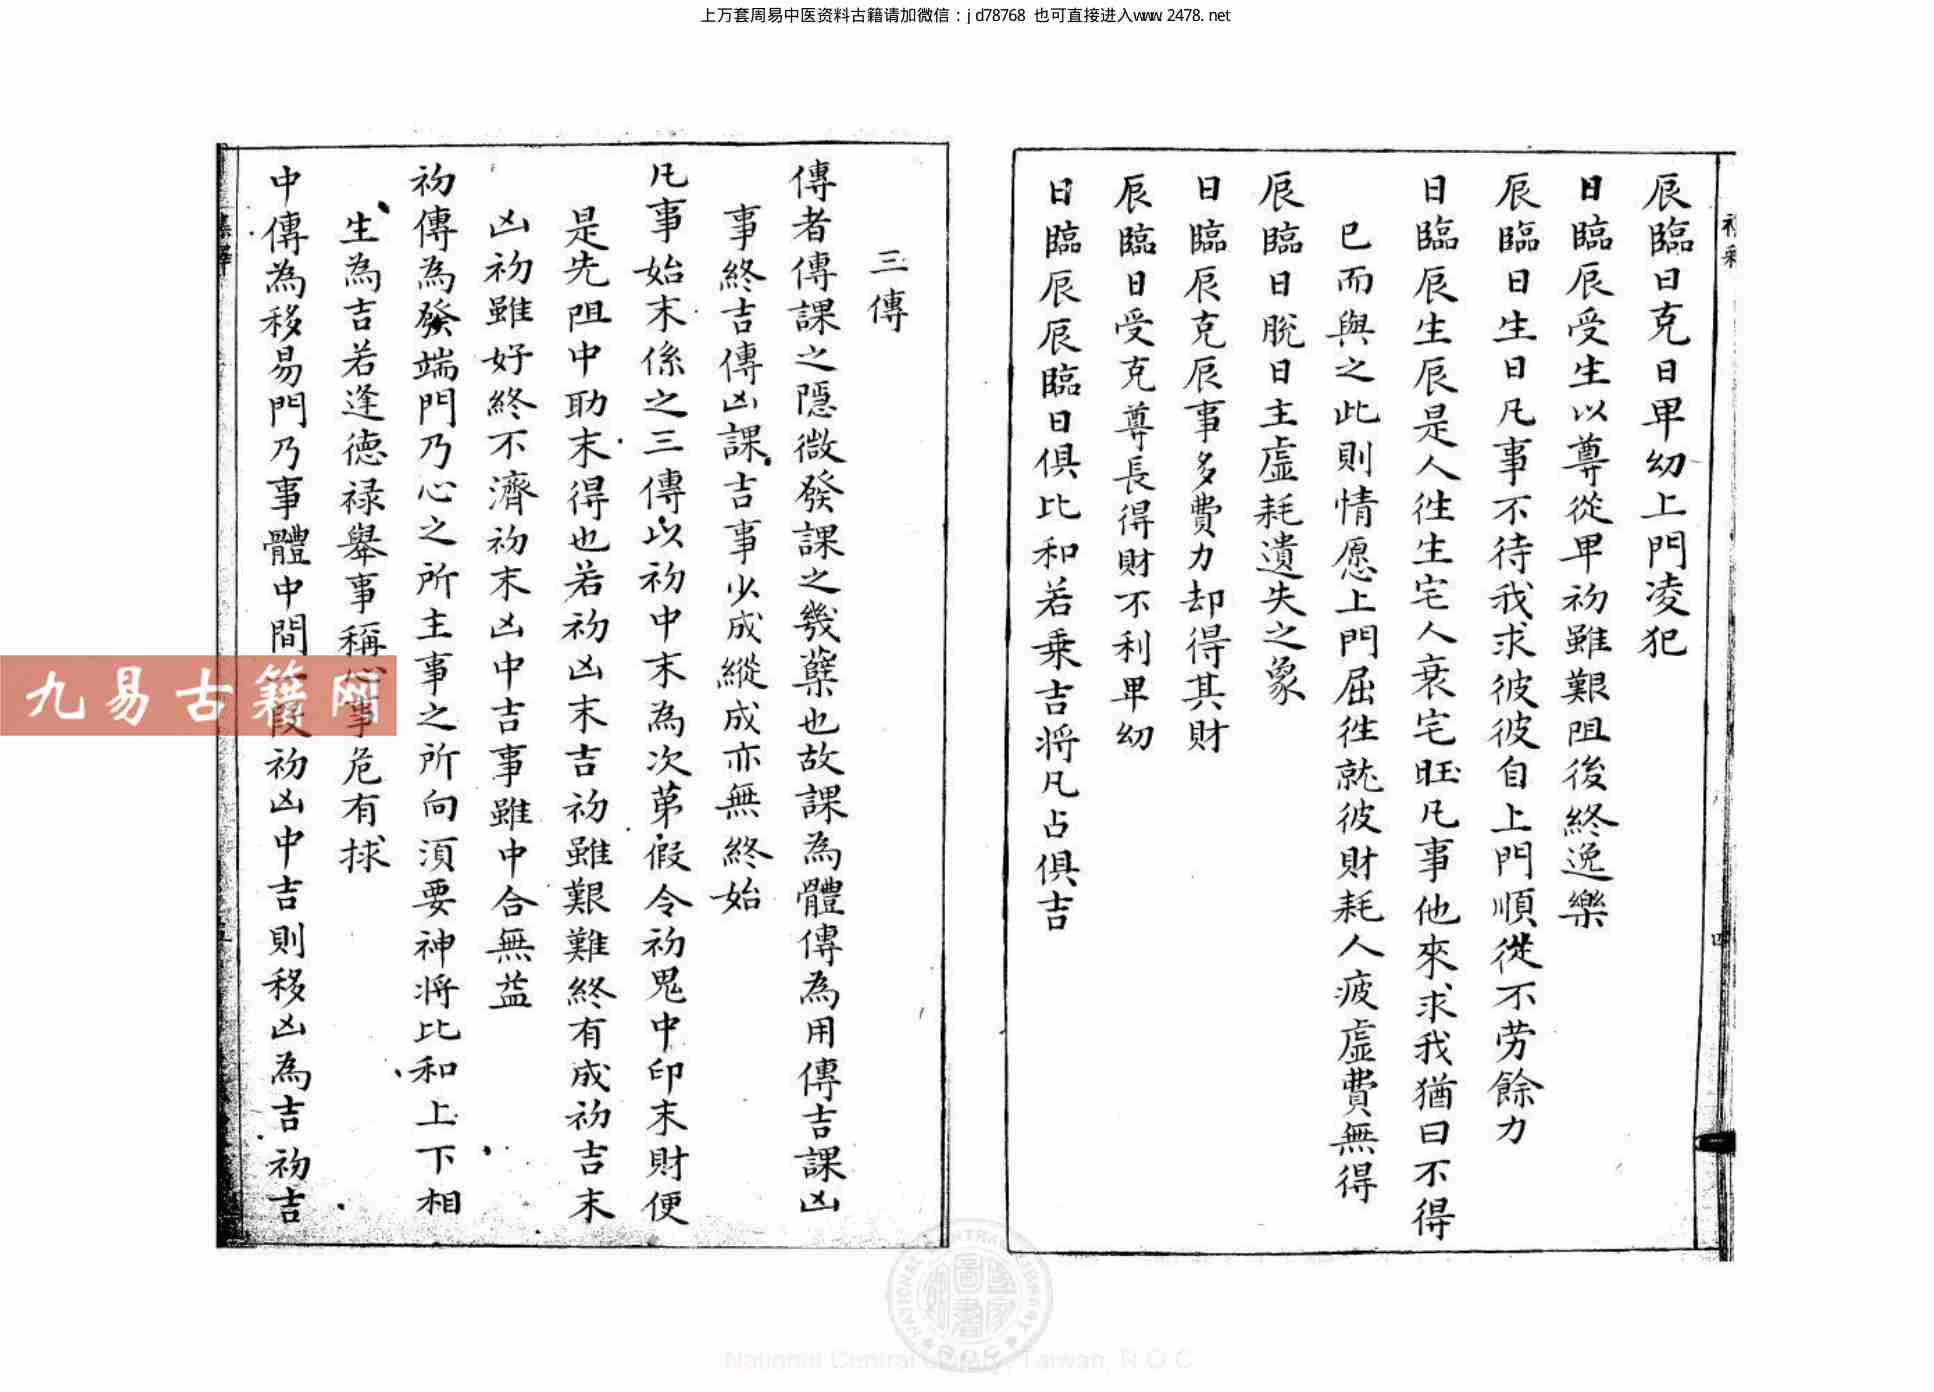 上万套周易中医资料古籍请加微信：jd78768 也可直接进入www.2478.net
辰臨日克日卑幼上門凌犯
日臨辰受生以尊從卑初雖艱阻後終逸樂
辰臨日生日凡事不待我求彼彼自上門順從不劳餘力
日臨辰生辰是人徃生宅人衰宅旺凡事他來求我猶曰不得
已而與之此則情愿上門屈徃就彼財耗人疲虛費無得
辰臨日脫日主虛耗遺失之象
日臨辰克辰事多費力却得其財
辰臨日受克尊長得財不利卑幼
日臨辰辰臨日俱比和若乗吉将凡占俱吉
三傳
傳者傳課之隱微發課之幾蘖也故課為體傳為用傳吉課凶
事終吉傳凶課吉事少成縱成亦無終始
凡事始末係之三傳以初中末為次苐假令初鬼中印末財便
是先阻中助末得也若初凶末吉初雖艱難終有成初吉末
凶初雖好終不濟初末凶中吉事雖中合無益
初傳為發端門乃心之所主事之所向須要神将比和上下相
生為吉若逢德禄舉事稱心事危有捄
中傳為移易門乃事體中間一段初凶中吉則移凶為吉初吉
九易古籍网
國家圖書館
NATIONAL CENTRAL LIBRARY
National Central Library, Taiwan, R.O.C